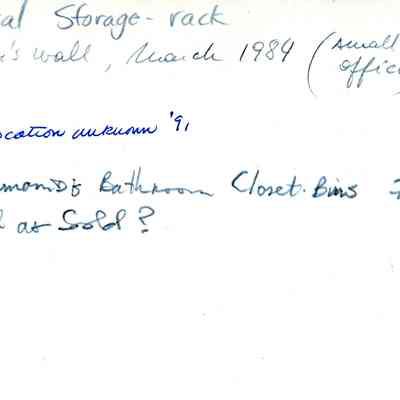 al Storage-rack
's wall, March 1984 (small
office
ocation unknown '91
Bathroom Closet Bins
as Sold?